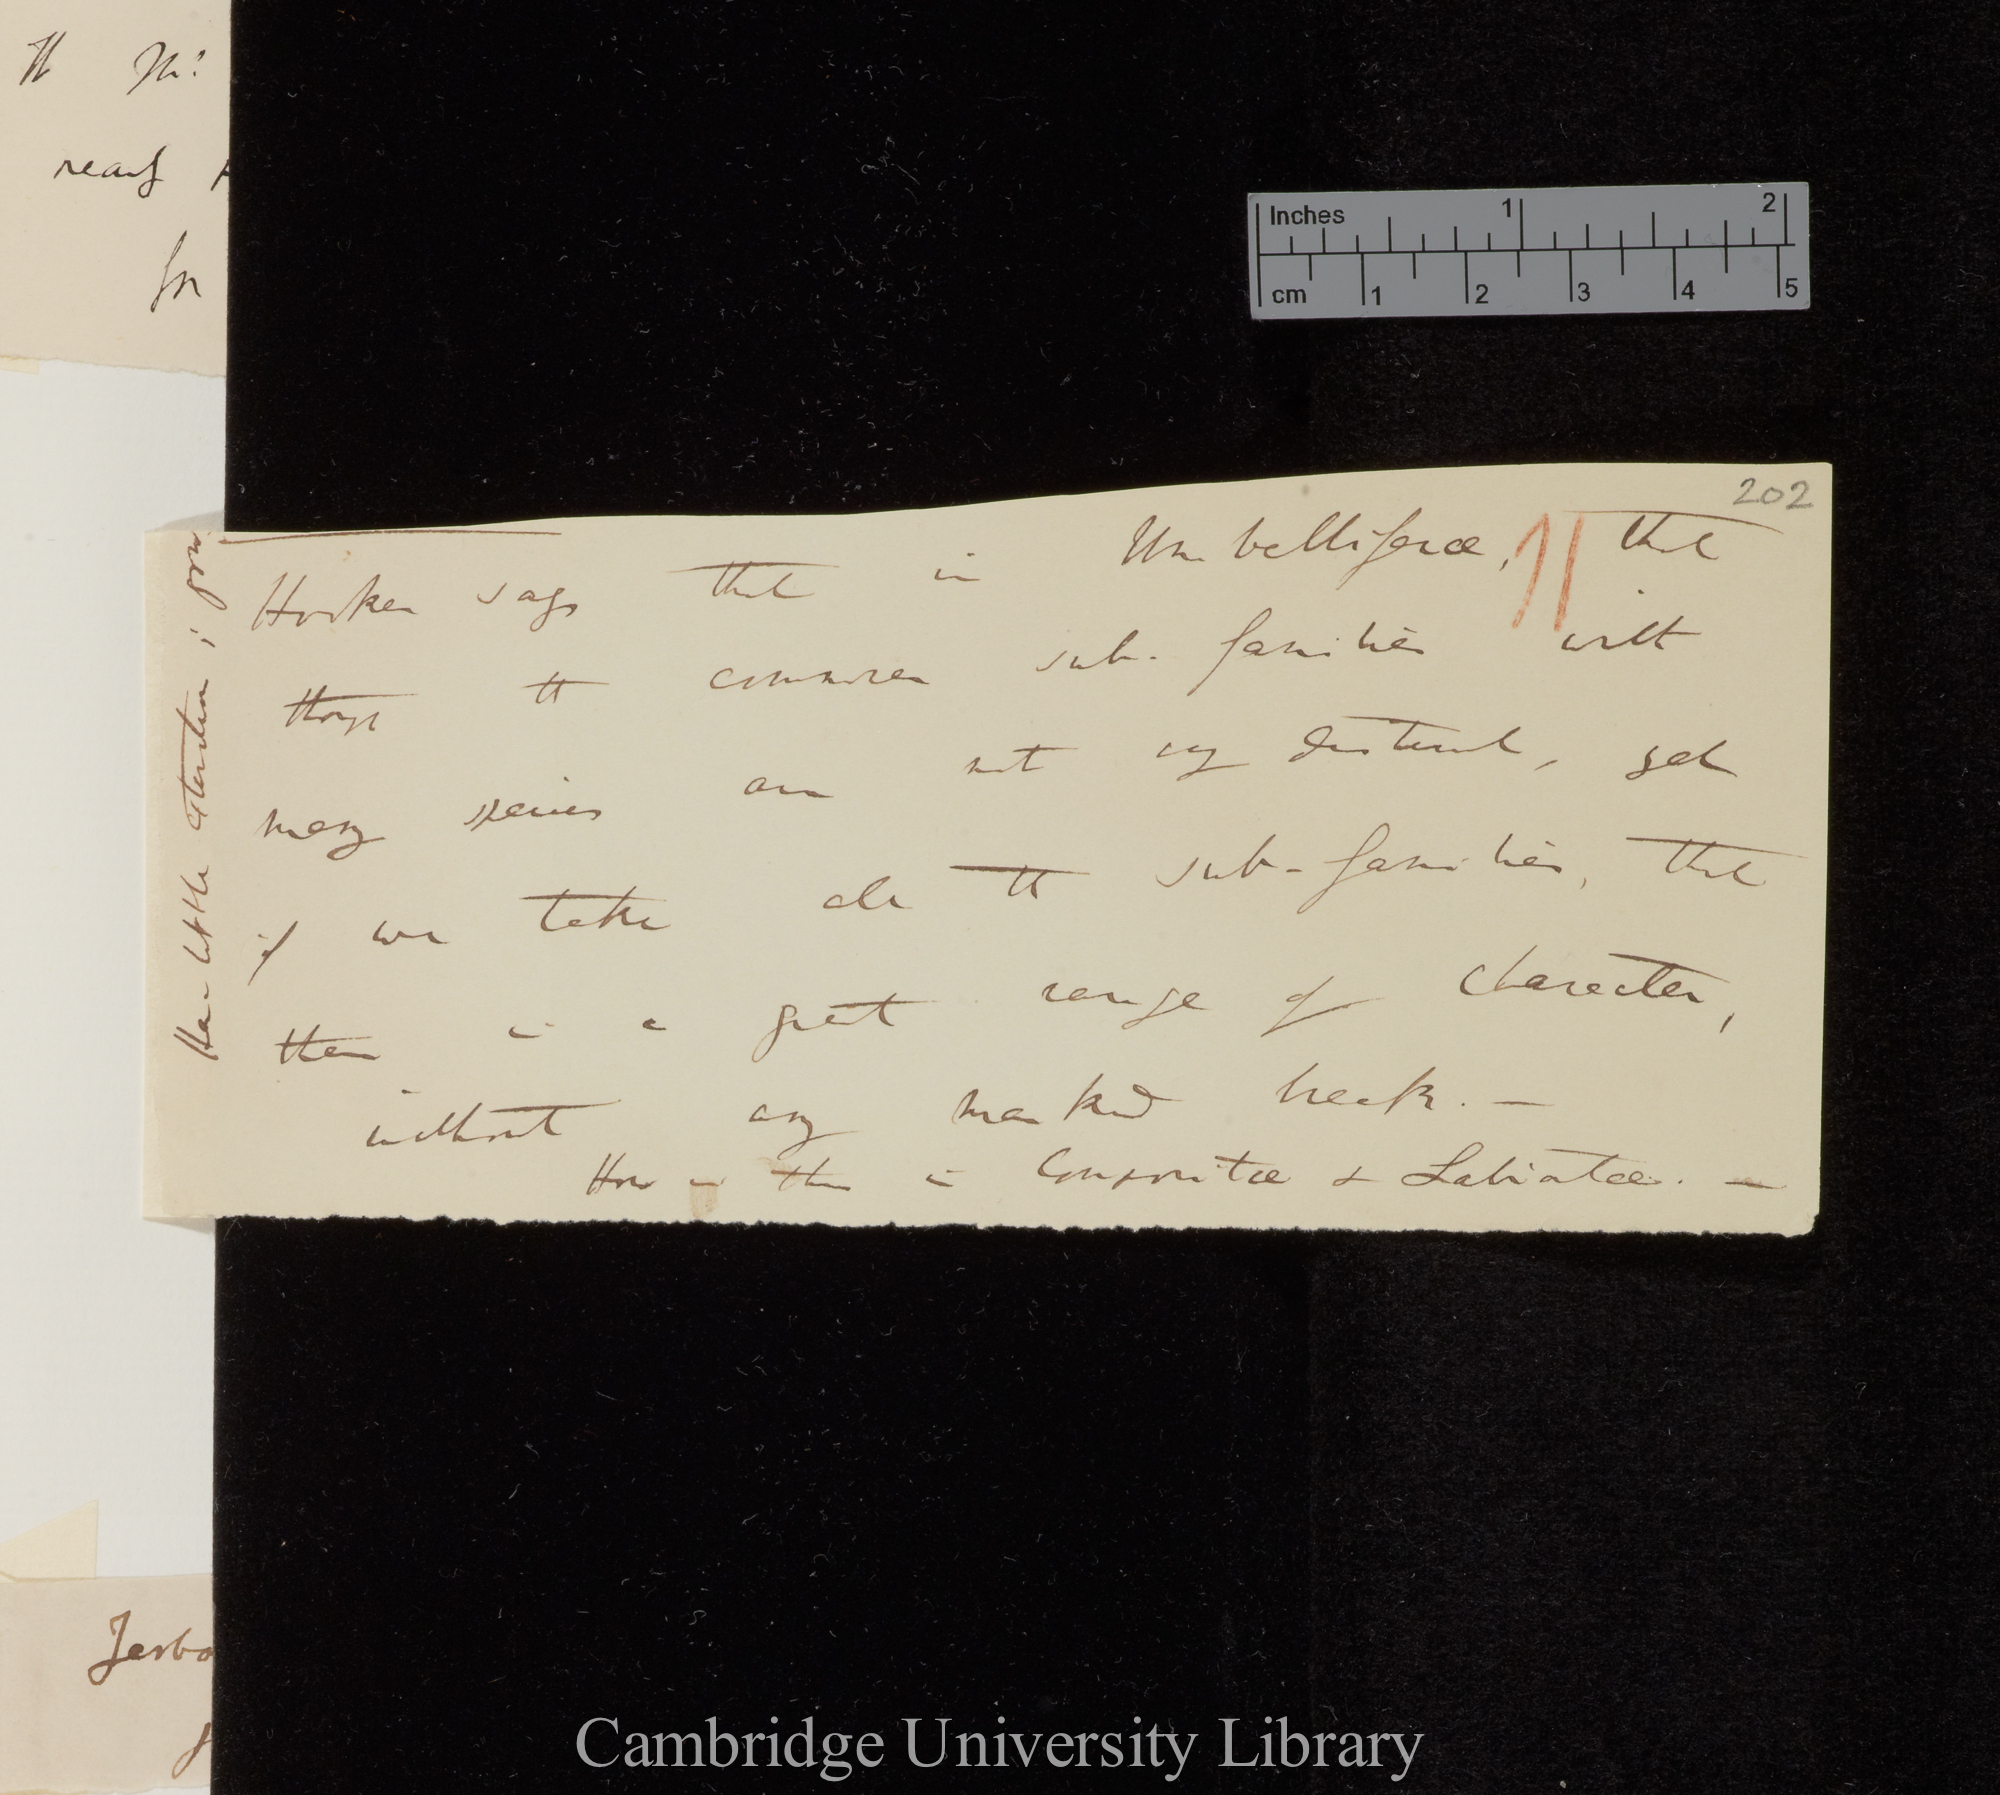 202
Hooker says that in Umbelliferæ, that
though the common sub-families with
many species are not very distinct, yet
if we take all the sub-families, that
there is a great range of character,
without any marked break. —
How is this in Compositæ & Labiatæ. —
Has little extension;
Inches 1 2
cm 1 2 3 4 5
Cambridge University Library